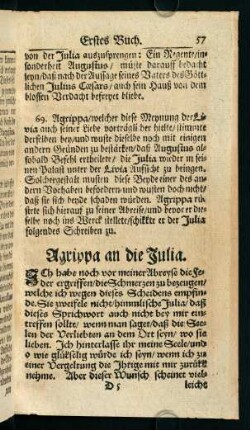 Erstes Buch. 57
von der Julia auszusprengen: Ein Regente/in-
sonderheit Augustus / müste darauf bedacht
seyn/daß nach der Aussage seines Vaters des Gött-
lichen Julius Cæsars/auch sein Hauß von dem
blossen Verdacht befreyet bliebe.
69. Agrippa/welcher diese Meynung der Li-
via auch seiner Liebe vorträgl ich hielte/ stimmete
derselben bey/und wuste dieselbe noch mit einigen
andern Gründen zu bestärken/daß Augustus al-
sobald Befehl ertheilete/ die Julia wieder in sei-
nen Palast unter der Livia Aufsicht zu bringen.
Solchergestalt musten diese Beyde einer des an-
dern Vorhaben befördern/und wusten doch nicht/
daß sie sich beyde schaden würden. Agrippa rü-
stete sich hierauf zu seiner Abreise/und bevor er die-
selbe noch ins Werck stellete/schikkte er der Julia
folgendes Schreiben zu.
Agrippa an die Julia.
Ich habe noch vor meiner Abreyse die Fe-
der ergriffen/die Schmerzen zu bezeugen/
welche ich wegen dieses Scheidens empfin-
de. Sie zweifele nicht/himmlische Julia/ daß
dieses Sprichwort auch nicht bey mir ein-
treffen sollte/ wenn man saget/daß die See-
len der Verliebten an dem Ort seyn/ wo sie
lieben. Ich hinterlasse ihr meine Seele/und
o wie glükselig würde ich seyn/ wenn ich zu
einer Vergeltung die Ihrige mit mir zurükk
nehme. Aber dieser Wunsch scheinet viel-
D 5 leicht